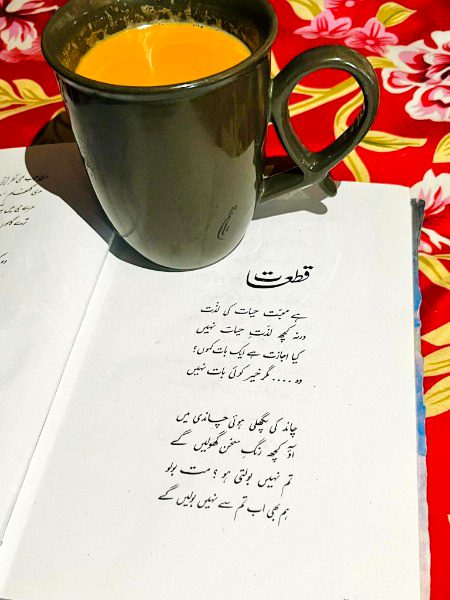 قطعات
ہے محبّت حیات کی لذّت
ورنہ کچھ لذّتِ حیات نہیں
کیا اجازت ہے ایک بات کہوں؟
وہ .... مگر خیر کوئی بات نہیں
چاند کی پگھلی ہوئی چاندی میں
آؤ کچھ رنگِ سخن گھولیں گے
تم نہیں بولتی ہو؟ مت بولو
ہم بھی اب تم سے نہیں بولیں گے